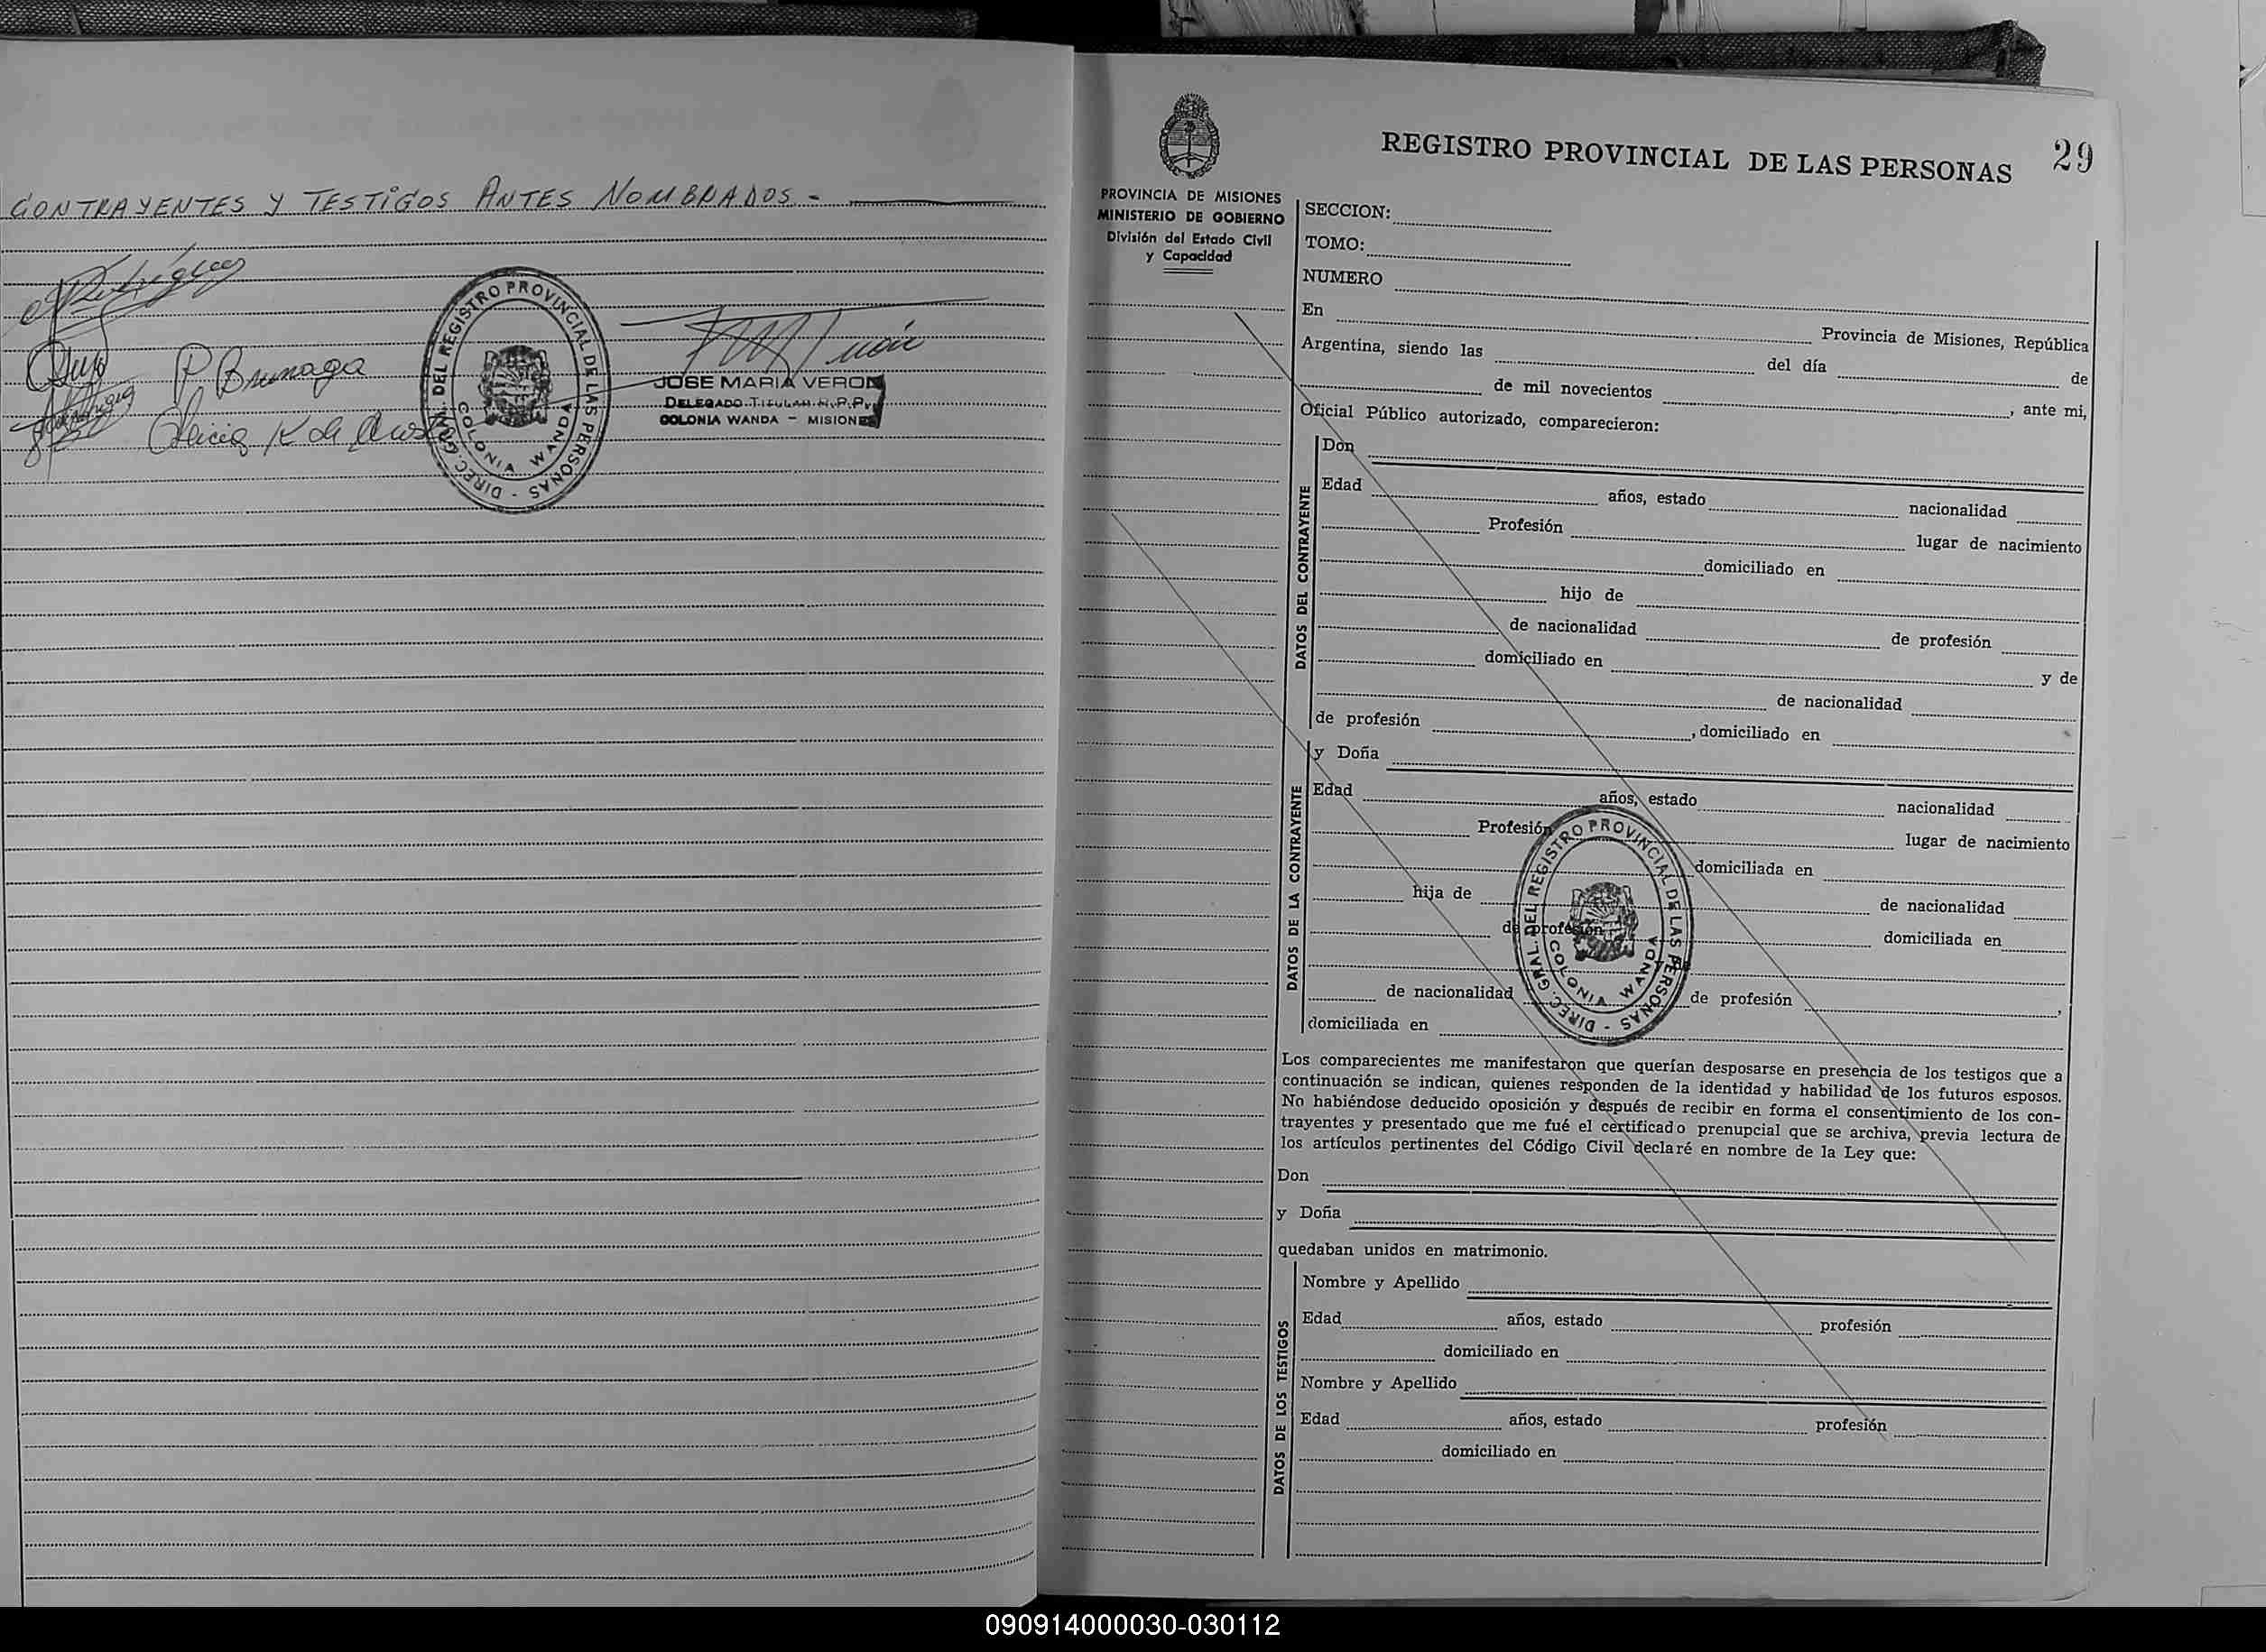 CONTRAYENTES Y TESTIGOS ANTES NOMBRADOS -
P. Brunaga
Alicia K de
DIREC. GRAL. DEL REGISTRO PROVINCIAL DE LAS PERSONAS -
COLONIA WANDA
JOSE MARIA VERON
DELEGADO TITULAR R.P.P.
COLONIA WANDA - MISIONES
PROVINCIA DE MISIONES
MINISTERIO DE GOBIERNO
División del Estado Civil
y Capacidad
REGISTRO PROVINCIAL DE LAS PERSONAS 29
SECCION:
TOMO:
NUMERO
En Provincia de Misiones, República
Argentina, siendo las del día de
de mil novecientos , ante mi,
Oficial Público autorizado, comparecieron:
DATOS DEL CONTRAYENTE
Don
Edad años, estado nacionalidad
Profesión lugar de nacimiento
domiciliado en
hijo de
de nacionalidad de profesión
domiciliado en y de
de nacionalidad
de profesión , domiciliado en
DATOS DE LA CONTRAYENTE
y Doña
Edad años, estado nacionalidad
Profesión lugar de nacimiento
domiciliada en
hija de de nacionalidad
de profesión domiciliada en
y de
de nacionalidad de profesión ,
domiciliada en
DIREC. GRAL. DEL REGISTRO PROVINCIAL DE LAS PERSONAS -
COLONIA WANDA
Los comparecientes me manifestaron que querían desposarse en presencia de los testigos que a
continuación se indican, quienes responden de la identidad y habilidad de los futuros esposos.
No habiéndose deducido oposición y después de recibir en forma el consentimiento de los con-
trayentes y presentado que me fué el certificado prenupcial que se archiva, previa lectura de
los artículos pertinentes del Código Civil declaré en nombre de la Ley que:
Don
y Doña
quedaban unidos en matrimonio.
DATOS DE LOS TESTIGOS
Nombre y Apellido
Edad años, estado profesión
domiciliado en
Nombre y Apellido
Edad años, estado profesión
domiciliado en
090914000030-030112